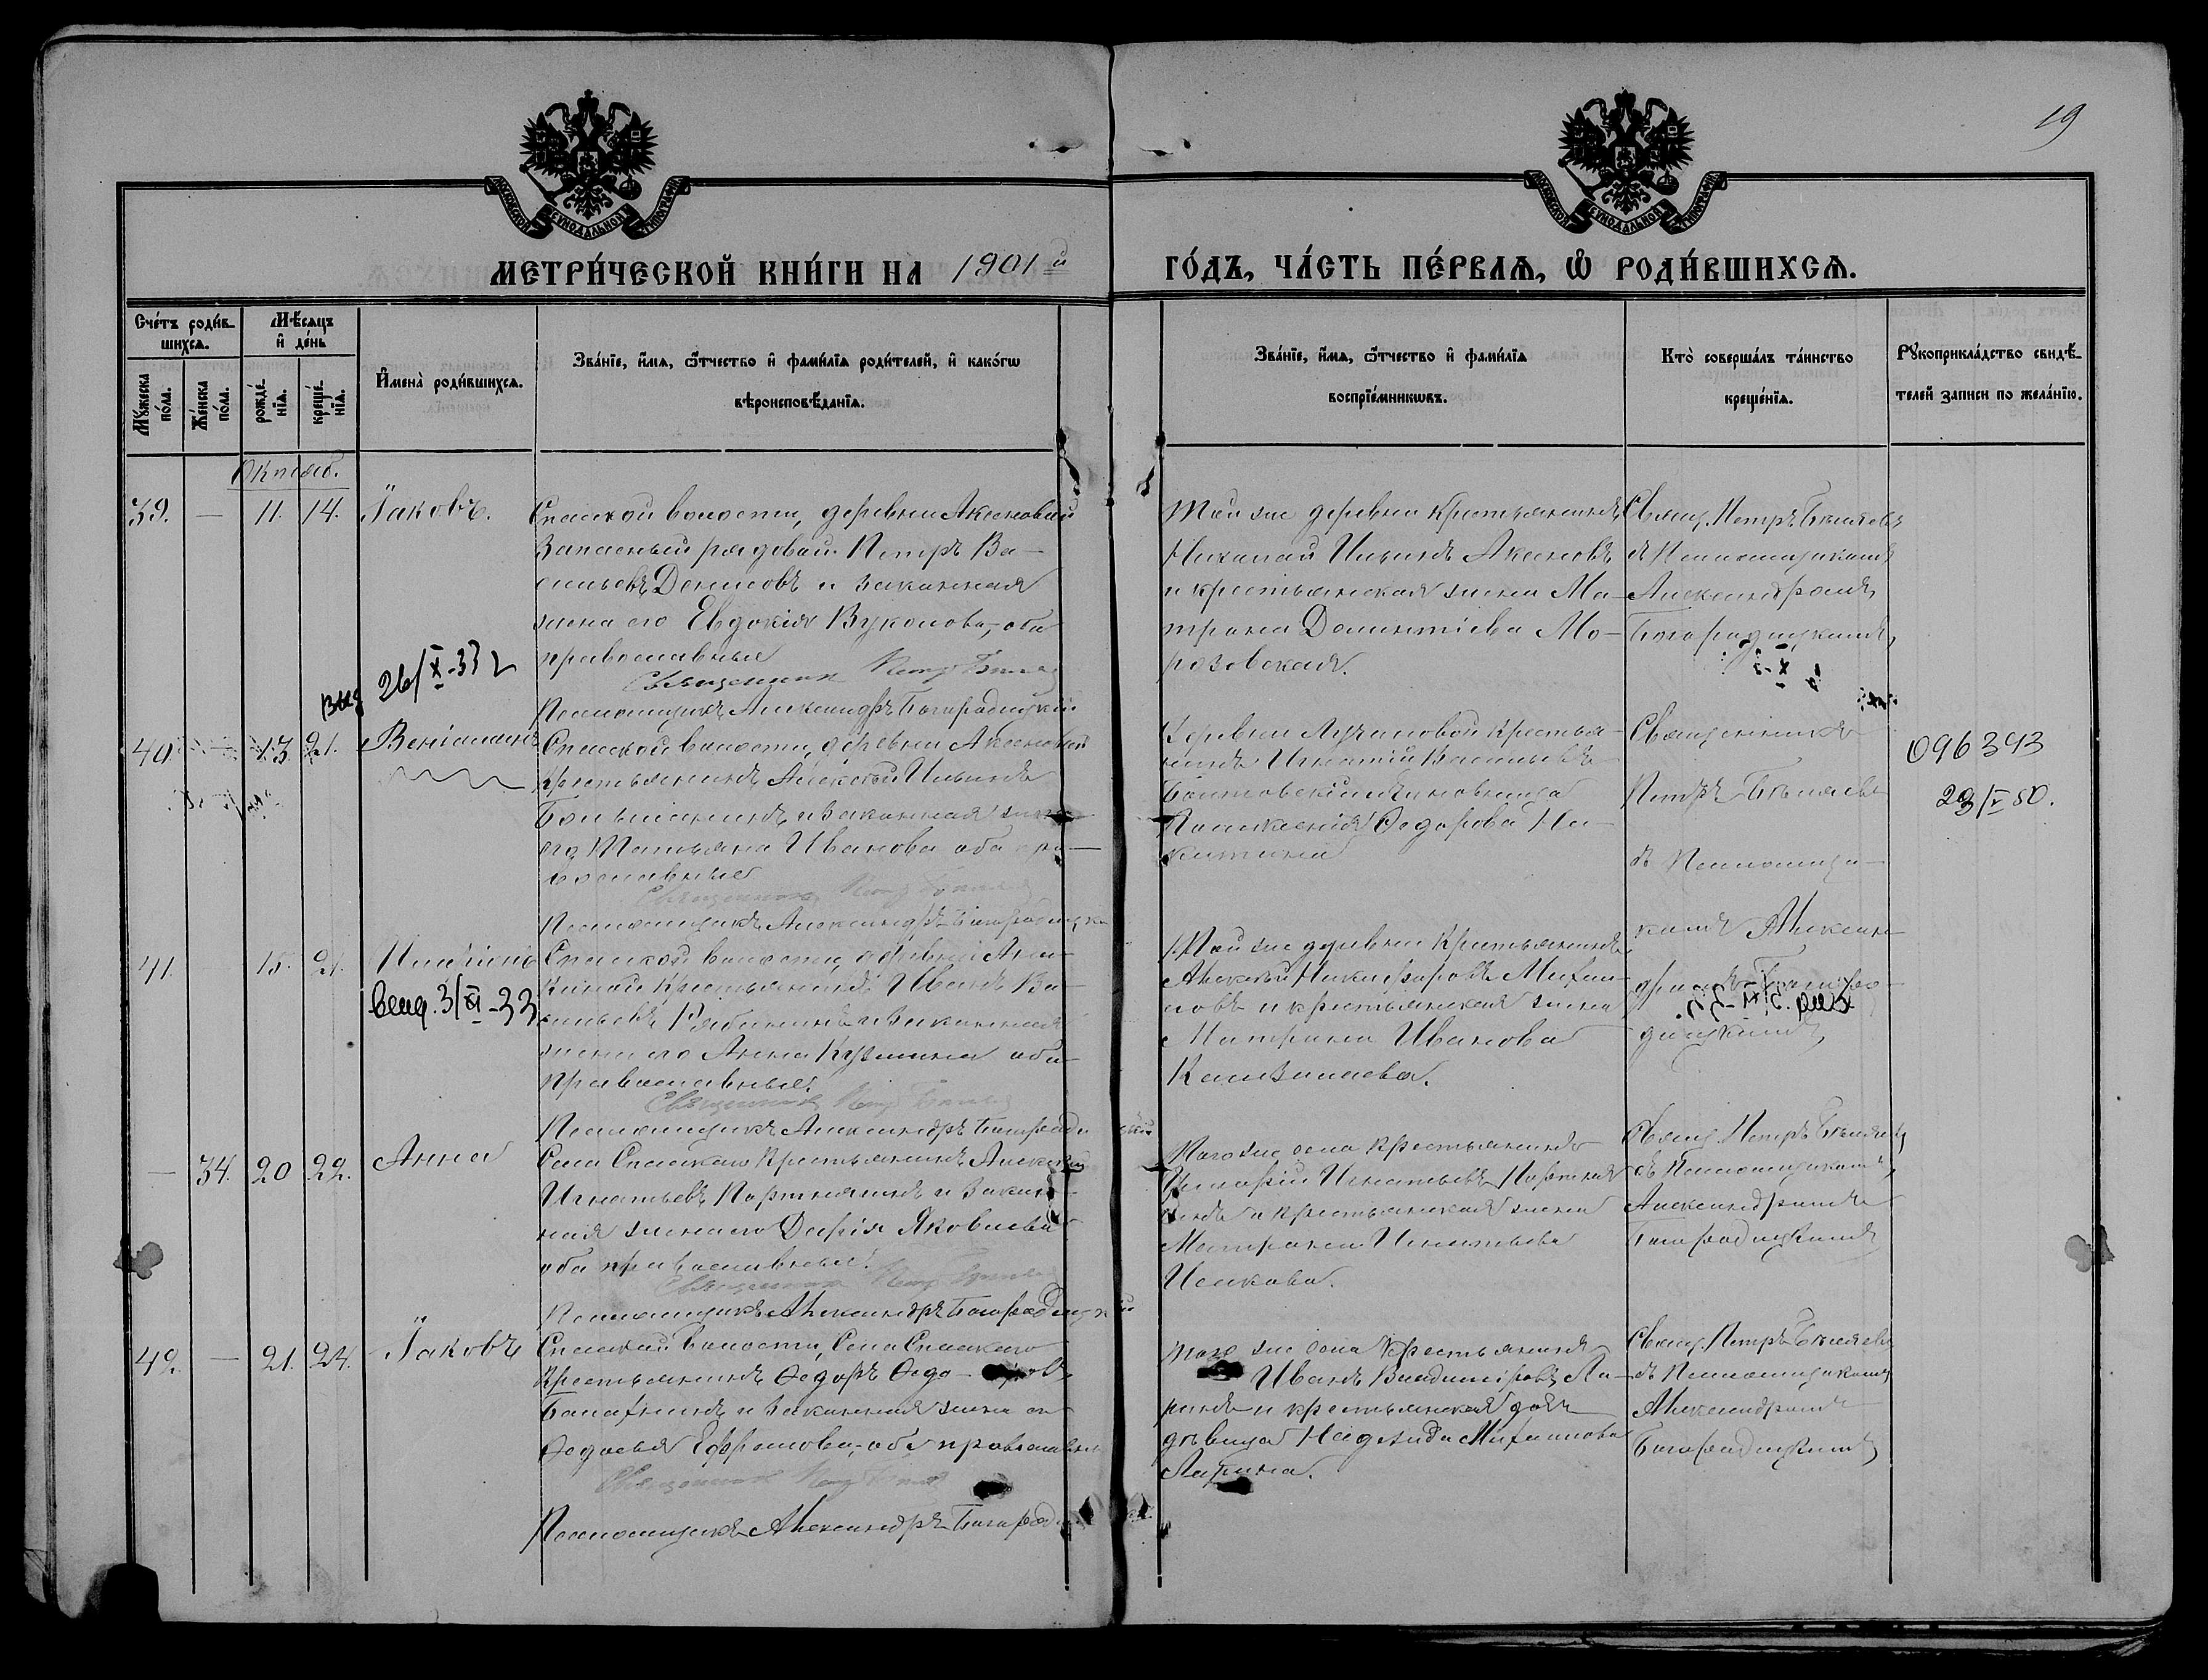 19
МОСКОВСКОЙ СѴНОДАЛЬНОЙ ТИПОГРАФІИ
МОСКОВСКОЙ СѴНОДАЛЬНОЙ ТИПОГРАФІИ
МЕТРИ́ЧЕСКОЙ КНИ́ГИ НА 1901й
ГО́ДЪ, ЧА́СТЬ ПЕ́РВАѦ, Ѡ҆ РОДИ́ВШИХСѦ.
Сче́тъ роди́в-
шихсѧ.
Мꙋ́жеска
по́ла.
Же́нска
по́ла.
Мѣ́сѧцъ
и҆ де́нь
рожде́-
нїѧ.
креще́-
нїѧ.
И҆мена̀ роди́вшихсѧ.
Зва́нїе, и҆́мѧ, ѻ҆́тчество и҆ фами́лїѧ роди́телей, и҆ како́гѡ
вѣроисповѣ́данїѧ.
Зва́нїе, и҆́мѧ, ѻ҆́тчество и҆ фами́лїѧ
воспрїе́мникѡвъ.
Кто̀ соверша́лъ та́инство
креще́нїѧ.
Рꙋкоприкла́дство свидѣ́-
телей записи по жела́нїю.
Октяб.
39. — 11. 14. Іаковъ.
Спасской волости, деревни Аксеновой
Запасный рядовой Петръ Ва-
сильевъ Денисовъ и законная
жена его Евдокія Вуколова, оба
православные
Священникъ Петръ Бѣляевъ
Псаломщикъ Александръ Богородицкій
Той же деревни крестьянинъ
Николай Ильинъ Аксеновъ
и крестьянская жена Ма-
трона Дементіева Мо-
розовская.
Свящ. Петръ Бѣляевъ
съ Псаломщикомъ
Александромъ
Богородицкимъ
26/X-33 г
40. — 13. 21. Веніаминъ
Спасской волости, деревни Аксеновой
Крестьянинъ Алексѣй Ильинъ
и законная жена
его Татьяна Иванова оба пра-
вославные
Священникъ Петръ Бѣляевъ
Псаломщикъ Александръ Богородицкій
Деревни Лучановой крестья-
нинъ Игнатій Васильевъ
Пелагія Ѳедорова Ни-
китина
Священникъ
Петръ Бѣляевъ
съ Псаломщи-
комъ Алексан-
дромъ Богоро-
дицкимъ
096393
29/V 80.
41. — 15. 21.
выд. 3/XI-33
Спасской волости, деревни
Крестьянинъ Иванъ Ва-
сильевъ Рябининъ и законная
жена его Анна Кузьмина оба
православные.
Священникъ Петръ Бѣляевъ
Псаломщикъ Александръ Богородицкій
Той же деревни Крестьянинъ
Алексѣй Никифоровъ Михай-
ловъ и крестьянская жена
Матрена Иванова
— 34. 20 22. Анна
Села Спасскаго Крестьянинъ Алексѣй
Игнатьевъ Портнягинъ и закон-
ная жена его Дарія Яковлева
оба православные.
Священникъ Петръ Бѣляевъ
Псаломщикъ Александръ Богородицкій
Того же села крестьянинъ
Игнатьевъ Портня-
гинъ и крестьянская жена
Матрена Игнатьева
Исакова.
Свящ. Петръ Бѣляевъ
съ Псаломщикомъ
Александромъ
Богородицкимъ
42. — 21. 24. Іаковъ
Спасской волости, Села Спасскаго
Крестьянинъ Ѳедоръ Ѳедо-ровъ
и законная жена его
Ѳедосья Ефремова, оба православные
Священникъ Петръ Бѣляевъ
Псаломщикъ Александръ Богородицкій
того же села крестьянинъ
Иванъ Владиміровъ Ла-
ринъ и крестьянская дочь
дѣвица Надежда Михайлова
Ларина.
Свящ. Петръ Бѣляевъ
съ Псаломщикомъ
Александромъ
Богородицкимъ